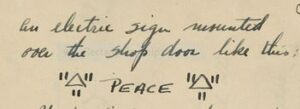 an electric sign mounted
over the shop door like this:
"△" PEACE "△"